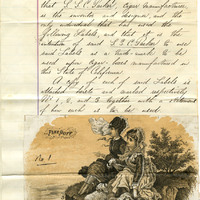 that S. L. C. Taylor, Cigar manufacturer,
is the inventor and designer, and the
only individual that has used the
following Labels, and that it is the
intention of said S. L. C. Taylor to use
said Labels as a Trade-mark to be
used upon Cigar boxes manufactured in
this State of California
A copy of each of said Labels is
attached hereto and marked respectively
No 1, 2, and 3 together with a statement
of how each is to be used
PURE PUFF
No. 1